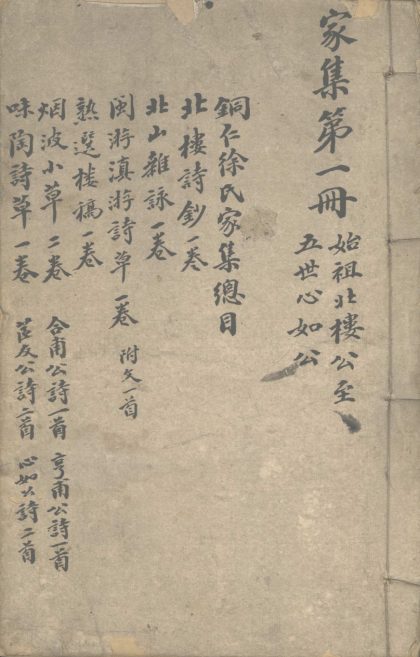 家集第一冊
始祖北樓公至
五世心如公
銅仁徐氏家集總目
北樓詩鈔一卷
北山雜詠一卷
閩游滇游詩草一卷 附文一首
熟選樓稿一卷
烟波小草二卷 合甫公詩一首 亨甫公詩一首
味陶詩草一卷 友公詩六首 心如公詩二首